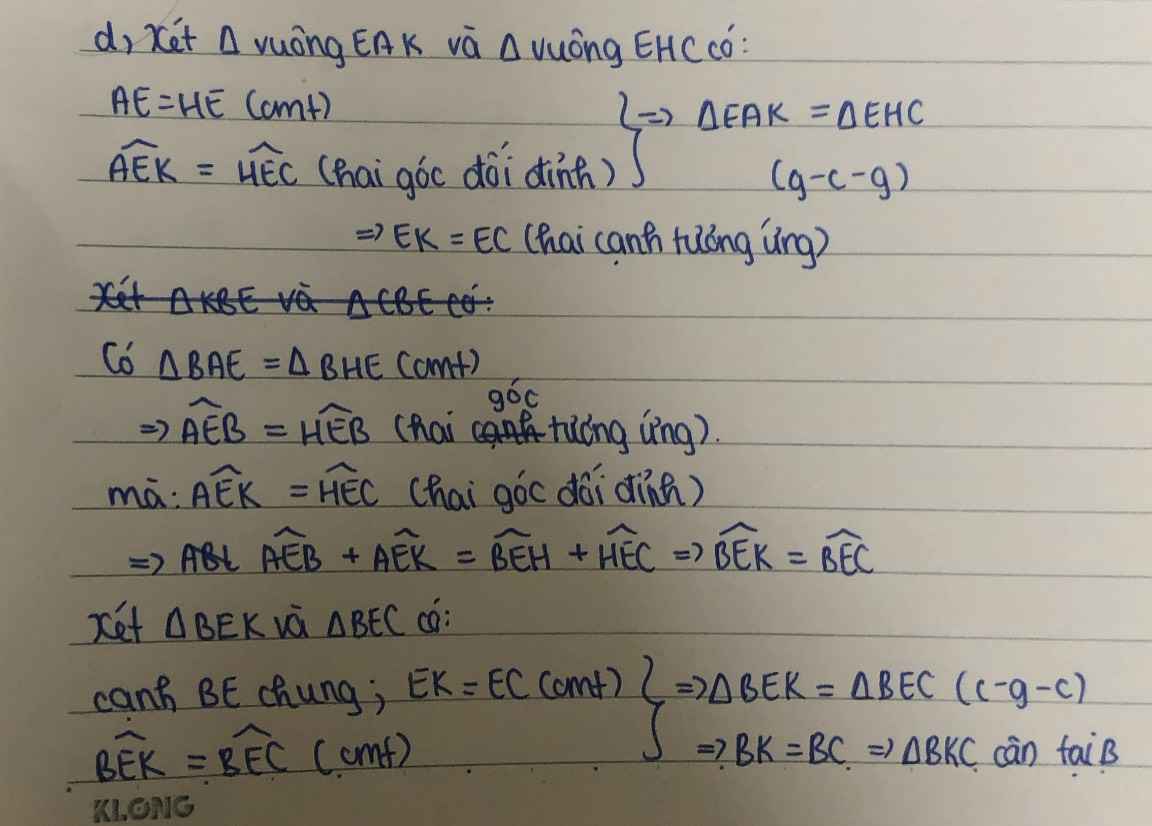 d, Xét Δ vuông EAK và Δ vuông EHC có:
AE = HE (cmt) } => ΔEAK = ΔEHC
\widehat{AEK} = \widehat{HEC} (hai góc đối đỉnh) (g-c-g)
=> EK = EC (hai cạnh tương ứng)
Xét ΔKBE và ΔCBE có:
Có ΔBAE = ΔBHE (cmt)
góc
=> \widehat{AEB} = \widehat{HEB} (hai cạnh tương ứng).
mà: \widehat{AEK} = \widehat{HEC} (hai góc đối đỉnh)
=> \widehat{AEB} + \widehat{AEK} = \widehat{BEH} + \widehat{HEC} => \widehat{BEK} = \widehat{BEC}
Xét ΔBEK và ΔBEC có:
cạnh BE chung; EK = EC (cmt) } => ΔBEK = ΔBEC (c-g-c)
\widehat{BEK} = \widehat{BEC} (cmt) => BK = BC => ΔBKC cân tại B
KLONG